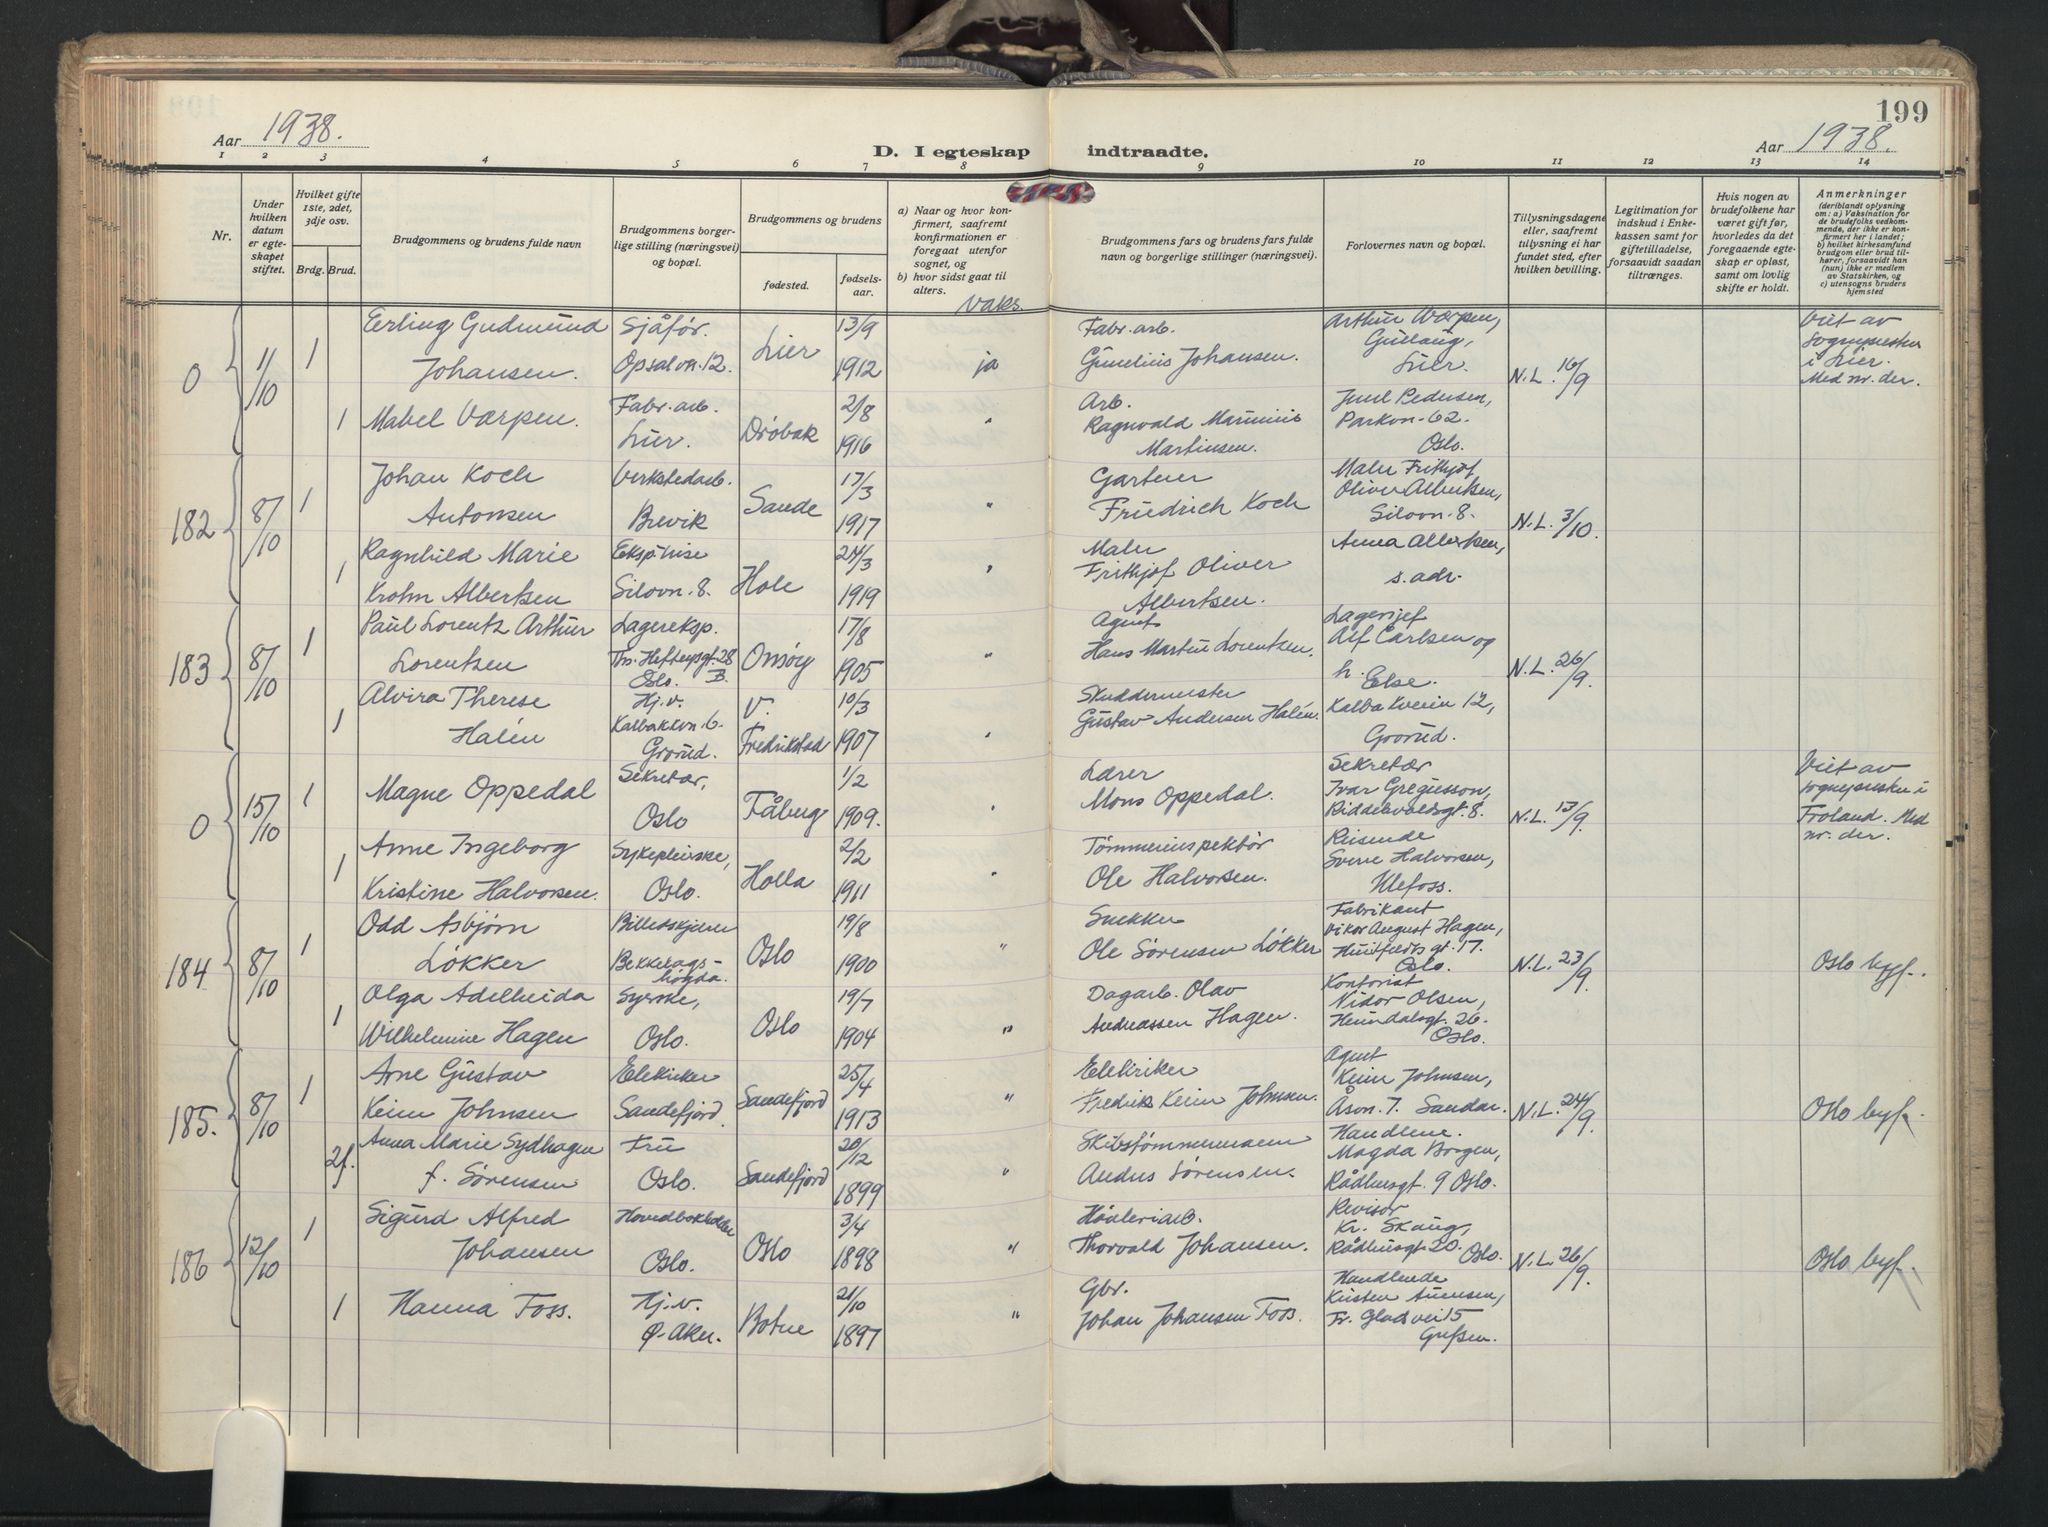 199
Aar 1938.
D. I egteskap indtraadte.
Aar 1938.
1 2 3 4 5 6 7 8 9 10 11 12 13 14
Nr.
Under
hvilken
datum
er egte-
skapet
stiftet.
Hvilket gifte
1ste, 2det,
3dje osv.
Brdg. Brud.
Brudgommens og brudens fulde navn
Brudgommens borger-
lige stilling (næringsvei)
og bopæl.
Brudgommens og brudens
fødested.
fødsels-
aar.
a) Naar og hvor kon-
firmert, saafremt
konfirmationen er
foregaat utenfor
sognet, og
b) hvor sidst gaat til
alters.
Vaks.
Brudgommens fars og brudens fars fulde
navn og borgerlige stillinger (næringsvei).
Forlovernes navn og bopæl.
Tillysningsdagene
eller, saafremt
tillysning ei har
fundet sted, efter
hvilken bevilling.
Legitimation for
indskud i Enke-
kassen samt for
giftetilladelse,
forsaavidt saadan
tiltrænges.
Hvis nogen av
brudefolkene har
været gift før,
hvorledes da det
foregaaende egte-
skap er opløst,
samt om lovlig
skifte er holdt.
Anmerkninger
(deriblandt oplysning
om: a) Vaksination for
de brudefolks vedkom-
mende, der ikke er kon-
firmert her i landet;
b) hvilket kirkesamfund
brudgom eller brud til-
hører, forsaavidt han
(hun) ikke er medlem
av Statskirken, og
c) utensogns bruders
hjemsted
0 11/10 1
Erling Gudmund
Johansen.
Sjåfør.
Opsalvn. 12.
Lier
13/9
1912
ja
Fabr. arb.
Gunelius Johansen.
Arthur Værpen,
Gullaug,
Lier.
N.L. 16/9
Viet av
sognepresten
i Lier.
Med nr. der.
1
Mabel Værpen.
Fabr. arb.
Lier.
Drøbak
2/8
1916
"
Arb.
Ragnvald Marinius
Martinsen.
Juul Pedersen,
Parkvn. 62.
Oslo.
182 8/10 1
Johan Koch
Antonsen
Verkstedarb.
Brevik
Sande
17/3
1917
"
Gartner
Friedrich Koch
Maler Frithjof
Oliver Albertsen,
Silovn. 8.
N.L. 3/10.
1
Ragnhild Marie
Krohn Albertsen
Ekspitrise
Silovn. 8.
Hole
24/3
1919
"
Maler
Frithjof Oliver
Albertsen.
Anna Albertsen,
s. adr.
183 8/10 1
Paul Lorentz Arthur
Lorentzen
Lagereksp.
Ths. Heftyesgt. 28
B.
Oslo.
Onsøy
17/8
1905
"
Agent
Hans Martin Lorentzen.
Lagersjef
Alf Carlsen og
h. Else.
Kalbakveien 12,
Grorud.
N.L. 26/9.
1
Alvira Therese
Halén
Hj.v.
Kalbakkvn. 6.
Grorud.
V.
Fredrikstad
10/3
1907
"
Skuddermester
Gustav Andersen Halén.
0 15/10 1
Magne Oppedal
Sekretær,
Oslo
Fåberg
1/2
1909.
"
Lærer
Mons Oppedal.
Sekretær
Ivar Gregusson,
Riddervoldsgt. 8.
N.L. 13/9.
Viet av
sognepresten i
Froland. Med
nr. der.
1
Anne Ingeborg
Kristine Halvorsen.
Sykepleierske,
Oslo.
Holla
2/2
1911
"
Tømmerinspektør
Ole Halvorsen.
Reisende
Sverre Halvorsen,
Ulefoss.
184 8/10 1
Odd Asbjørn
Løkker
Billedskjærer
Bekkelags-
høgda.
Oslo
19/8
1900
"
Snekker
Ole Sørensen Løkker
Fabrikant
Viktor August Hagen,
Huitfeldts gt. 17.
Oslo.
N.L. 23/9.
Oslo byf.
1
Olga Adelheida
Wilhelmine Hagen
Syerske,
Oslo.
Oslo
19/7
1904
"
Dagarb. Olav
Andreassen Hagen.
Kontorist
Nidor Olsen,
Heimdalsgt. 26.
Oslo.
185. 8/10 1
Arne Gustav
Keim Johnsen
Elektriker
Sandefjord.
Sandefjord
25/4
1913
"
Elektriker
Fredrik Keim Johnsen.
Agent
Keim Johnsen,
Åsvn. 7. Sandar.
N.L. 24/9.
Oslo byf.
2f.
Anna Marie Sydhagen
f. Sørensen
Fru
Oslo.
Sandefjord
20/12
1899
"
Skibstømmermann
Anders Sørensen.
Handlene.
Magda Borgen,
Rådhusgt. 9 Oslo.
186 12/10 1
Sigurd Alfred
Johansen
Hovedbokholder
Oslo.
Oslo
3/4
1898
"
Høvleriarb.
Thorvald Johansen.
Revisor
Kr. Skaug,
Rådhusgt. 20. Oslo.
N.L. 26/9.
Oslo byf.
1
Hanna Foss.
Hj.v.
Ø. Aker.
Botne
21/10
1897
"
Gbr.
Johan Johansen Foss.
Handlende
Kristen Aunesen,
Fr. Gladvei 15
Grefsen.